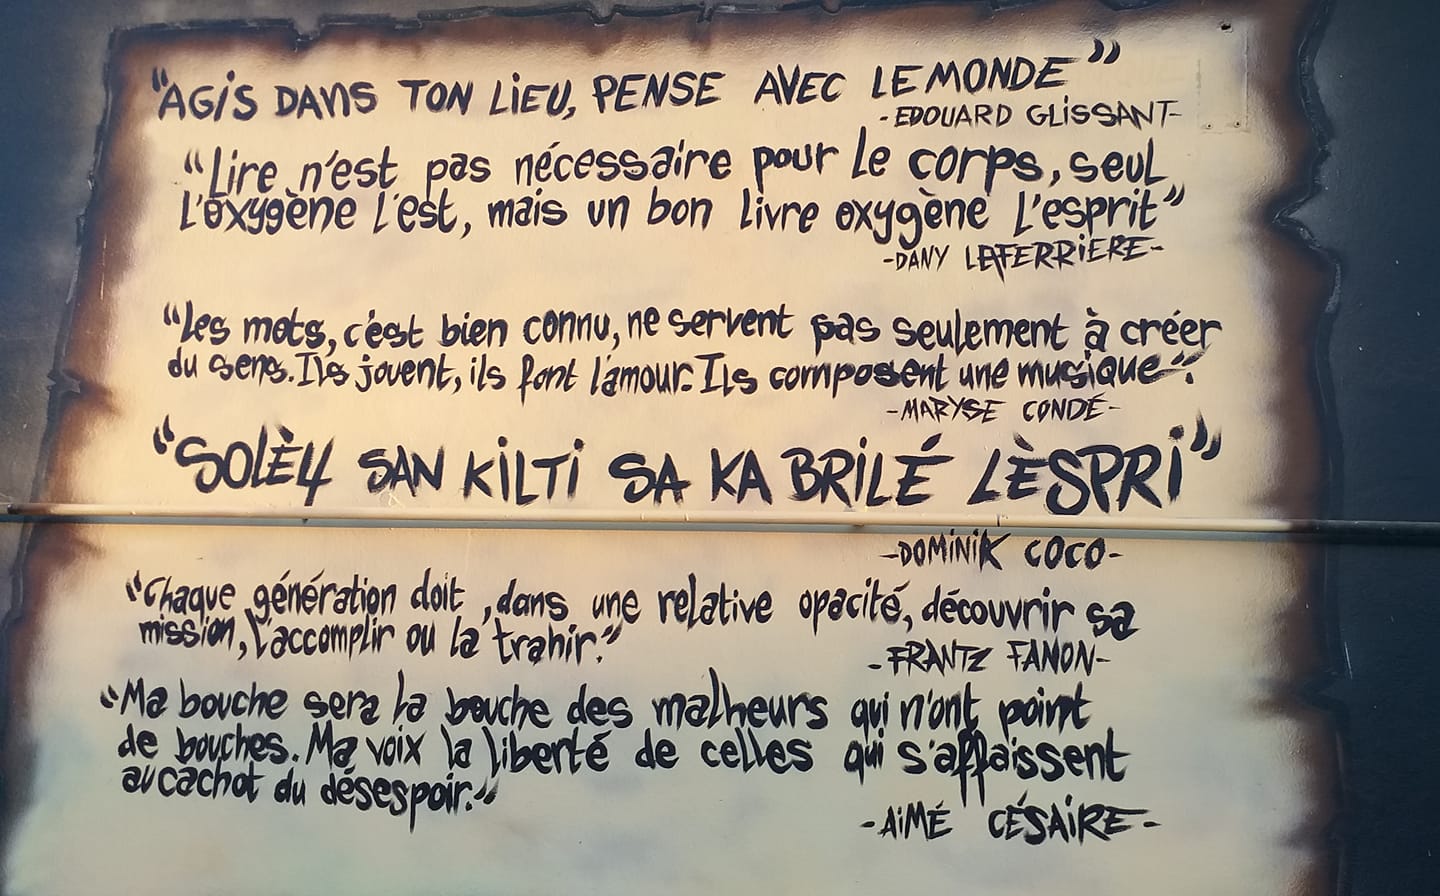 “AGiS DANS TON LiEU, PENSE AVEC LE MONDE”
-EDOUARD GLiSSANT-
“Lire n'est pas nécessaire pour le corps, seul
l'oxygène l'est, mais un bon livre oxygène l'esprit”
-DANY LAFERRiERE-
“Les mots, c'est bien connu, ne servent pas seulement à créer
du sens. Ils jouent, ils font l'amour. Ils composent une musique”.
-MARYSE CONDÉ-
“SOLÈY SAN KiLTi SA KA BRiLÉ LÈSPRi”
-DOMiNiK COCO-
“Chaque génération doit , dans une relative opacité, découvrir sa
mission, l'accomplir ou la trahir.”
-FRANTZ FANON-
“Ma bouche sera la bouche des malheurs qui n'ont point
de bouches. Ma voix la liberté de celles qui s'affaissent
au cachot du désespoir.”
-AiMÉ CÉSAiRE-